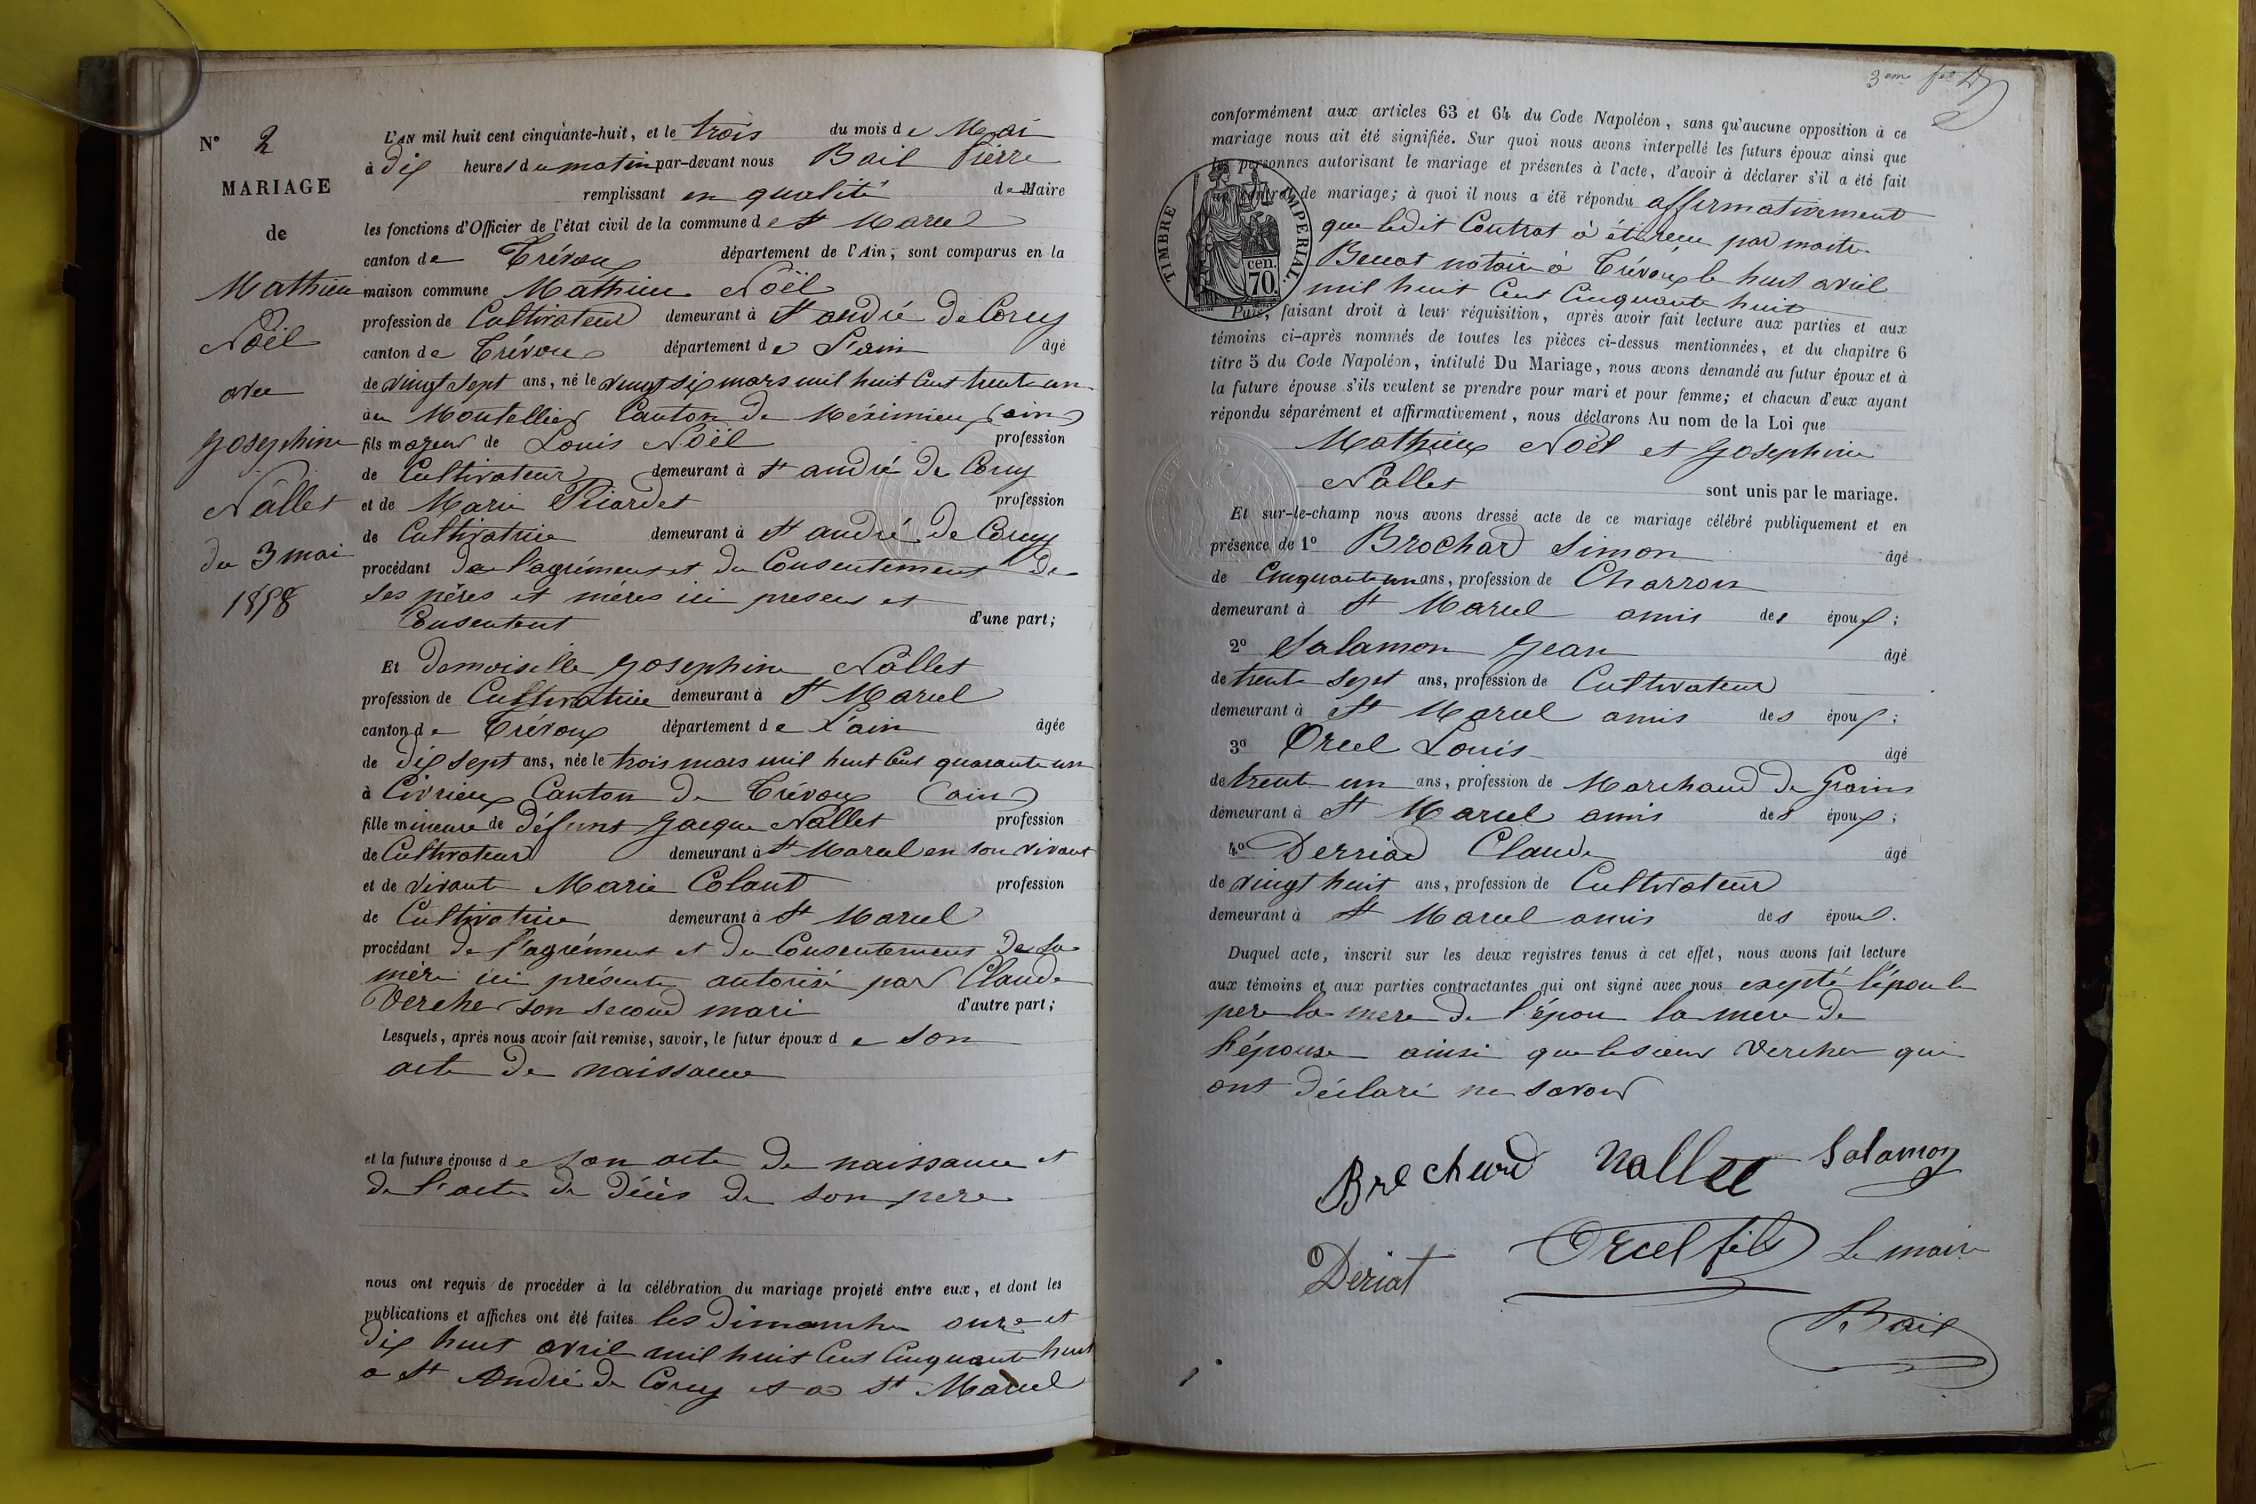 N° 2
MARIAGE
de
Mathieu
Noël
avec
Josephine
Nallet
du 3 mai
1858
L'AN mil huit cent cinquante-huit, et le trois du mois de Mai
à dix heures du matin par-devant nous Bail Pierre
remplissant en qualité de Maire
les fonctions d'Officier de l'état civil de la commune de St Marcel
canton de Trévoux département de l'Ain, sont comparus en la
maison commune Mathieu Noël
profession de Cultivateur demeurant à St andré de Corcy
canton de Trévoux département de L'ain âgé
de vingt sept ans, né le vingt six mars mil huit cent trente un
au Montellier Canton de Méximieux (ain)
fils majeur de Louis Noël profession
de Cultivateur demeurant à St andré de Corcy
et de Marie Picardet profession
de Cultivatrice demeurant à St andré de Corcy
procédant de l'agrément et du Consentement de
ses pères et mères ici presens et
Consentent d'une part;
Et demoiselle Josephine Nallet
profession de Cultivatrice demeurant à St Marcel
canton de Trévoux département de L'ain âgée
de dix sept ans, née le trois mars mil huit cent quarante un
à Civrieux Canton de Trévoux (ain)
fille mineure de défunt Jacque Nallet profession
de Cultivateur demeurant à St Marcel en son vivant
et de vivante Marie Colant profession
de Cultivatrice demeurant à St Marcel
procédant de l'agrément et du Consentement de sa
mère ici présente autorisé par Claude
Vercher son second mari d'autre part;
Lesquels, après nous avoir fait remise, savoir, le futur époux de son
acte de naissance
et la future épouse de son acte de naissance et
de l'acte de décès de son pere
nous ont requis de procéder à la célébration du mariage projeté entre eux, et dont les
publications et affiches ont été faites les dimanche onze et
dix huit avril mil huit cent cinquante huit
a St André de Corcy et a St Marcel
3em
conformément aux articles 63 et 64 du Code Napoléon, sans qu'aucune opposition à ce
mariage nous ait été signifiée. Sur quoi nous avons interpellé les futurs époux ainsi que
les personnes autorisant le mariage et présentes à l'acte, d'avoir à déclarer s'il a été fait
un contrat de mariage; à quoi il nous a été répondu affirmativement
TIMBRE IMPERIAL
cen.
70.
que ledit Contrat à été recu par maitre
notaire à Trévoux le huit avril
mil huit Cent Cinquante huit
Puis, faisant droit à leur réquisition, après avoir fait lecture aux parties et aux
témoins ci-après nommés de toutes les pièces ci-dessus mentionnées, et du chapitre 6
titre 5 du Code Napoléon, intitulé Du Mariage, nous avons demandé au futur époux et à
la future épouse s'ils veulent se prendre pour mari et pour femme; et chacun d'eux ayant
répondu séparément et affirmativement, nous déclarons Au nom de la Loi que
Mathieux Noël et Josephine
Nallet sont unis par le mariage.
Et sur-le-champ nous avons dressé acte de ce mariage célébré publiquement et en
présence de 1° Brochard Simon âgé
de Cinquante un ans, profession de Charron
demeurant à St Marcel amis des époux;
2° Salamon Jean âgé
de trente sept ans, profession de Cultivateur
demeurant à St Marcel amis des époux;
3° Orcel Louis âgé
de trente un ans, profession de Marchand de Grains
demeurant à St Marcel amis des époux;
4° Derriad Claude âgé
de vingt huit ans, profession de Cultivateur
demeurant à St Marcel amis des époux.
Duquel acte, inscrit sur les deux registres tenus à cet effet, nous avons fait lecture
aux témoins et aux parties contractantes qui ont signé avec nous exepté l'épou le
pere la mere de l'épou la mere de
l'épouse ainsi que le sieur Vercher qui
ont déclaré ne savoir
Brechard Nallet Salamon
Deriat Orcel fils Le maire
Bail